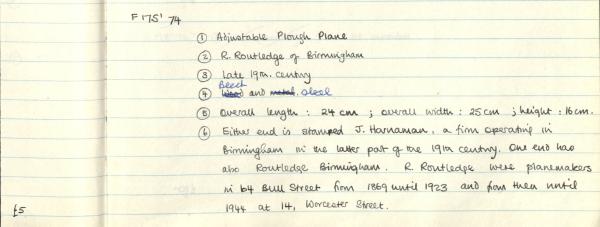 F'175' 74
① Adjustable Plough Plane
② R. Routledge of Birmingham
③ Late 19th. century
Beech
④ Wood and metal. steel
⑤ Overall length : 24 cm ; overall width : 25 cm ; height : 16 cm.
⑥ Either end is stamped J. Harnaman, a firm operating in
Birmingham in the latter part of the 19th century. One end has
also Routledge Birmingham. R. Routledge were planemakers
in 64 Bull Street from 1869 until 1923 and from then until
£5
1944 at 14, Worcester Street.